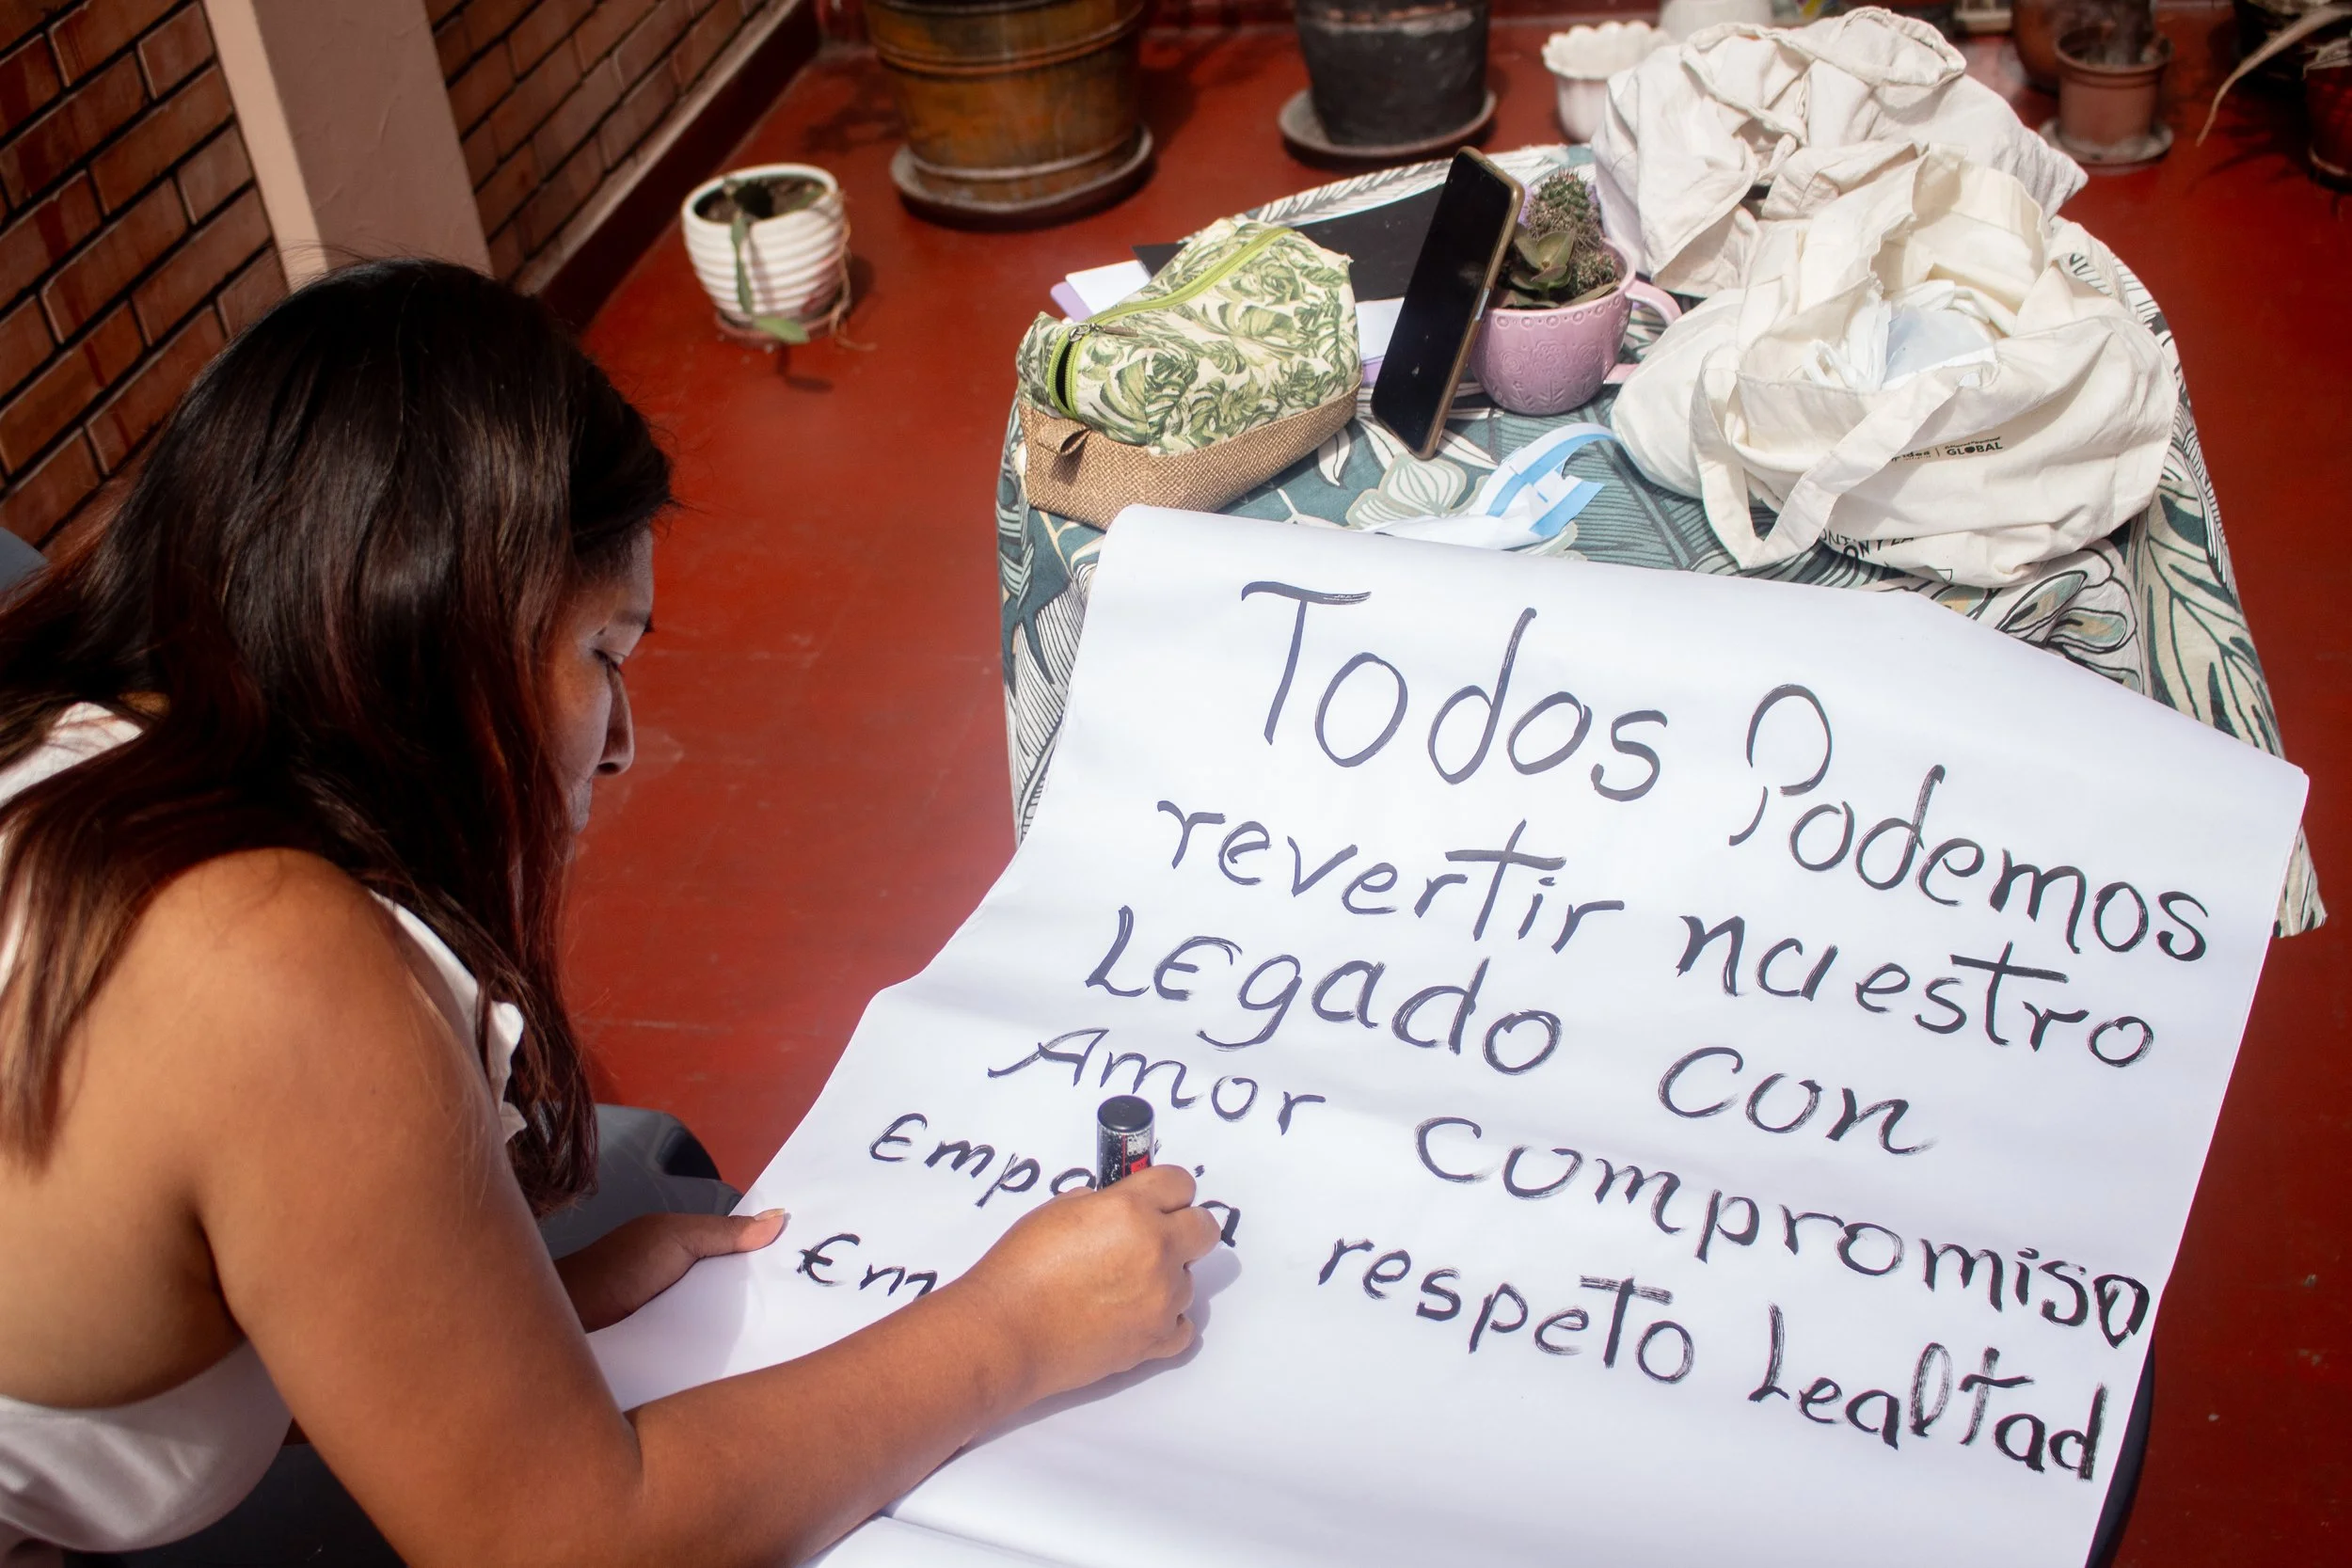 Todos Podemos
revertir nuestro
LEgado con
Amor compromiso
respeto Lealtad
Em
GLOBAL